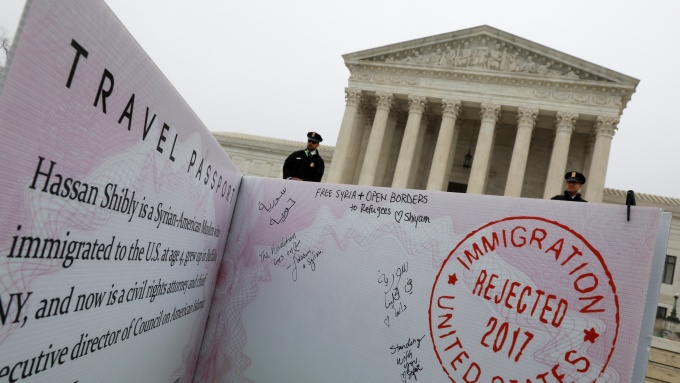 TRAVEL PASSPORT
Hassan Shibly is a Syrian-American Muslim who
immigrated to the U.S. at age 4, grew up in Buffalo
NY, and now is a civil rights attorney and chief
executive director of Council on American Islamic
سورية
حرية
FREE SYRIA + OPEN BORDERS
to Refugees ♡ Shiyam
The Revolution
lives on
Syria
سوريا
حرة
Standing
with you
IMMIGRATION
REJECTED
2017
UNITED STATES